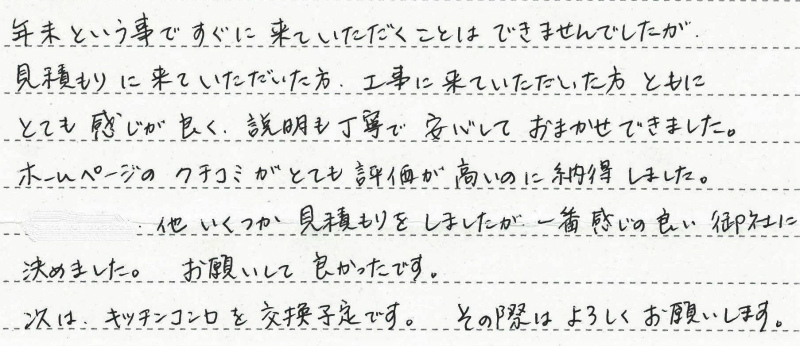 年末という事ですぐに来ていただくことはできませんでしたが、
見積もりに来ていただいた方、工事に来ていただいた方ともに
とても感じが良く、説明も丁寧で安心しておまかせできました。
ホームページのクチコミがとても評価が高いのに納得しました。
、他いくつか見積もりをしましたが一番感じの良い御社に
決めました。 お願いして良かったです。
次は、キッチンコンロを交換予定です。 その際はよろしくお願いします。